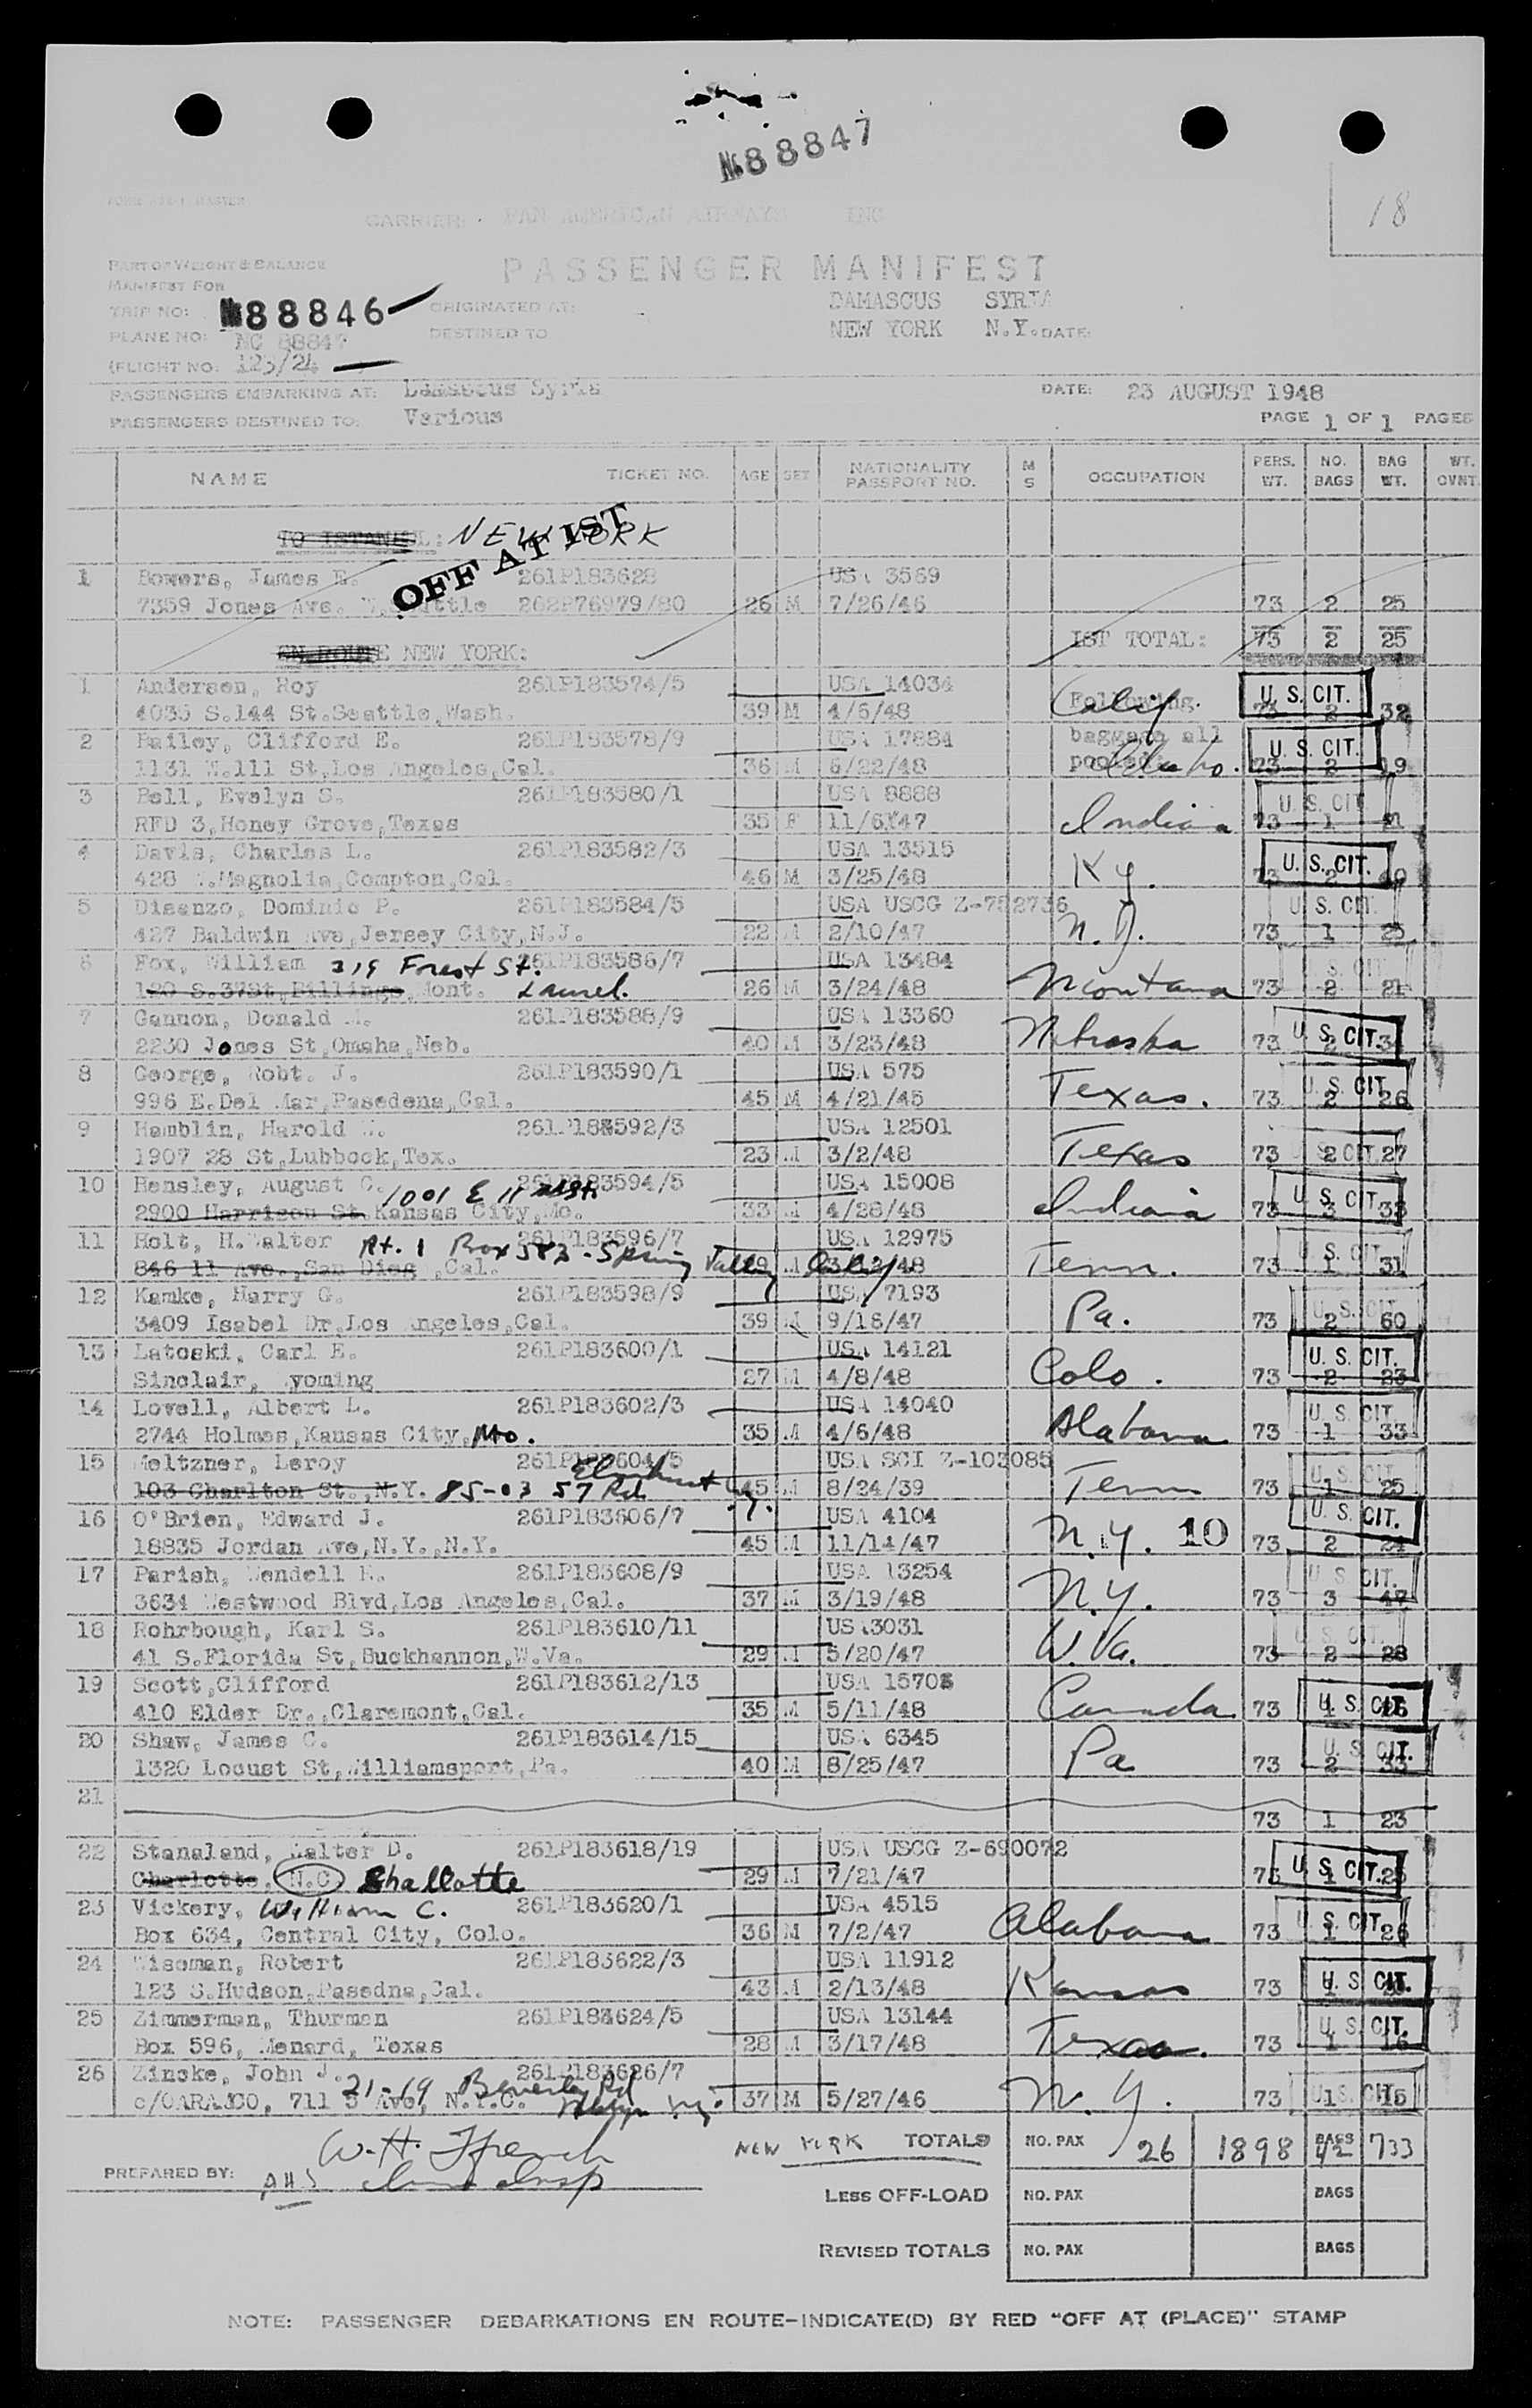 No 88847
18
CARRIER: PAN AMERICAN AIRWAYS INC
PART OF WEIGHT & BALANCE
PASSENGER MANIFEST
MANIFEST FOR
TRIP NO: No 88846 ORIGINATED AT: DAMASCUS SYRIA
PLANE NO: NC 88847 DESTINED TO NEW YORK N.Y. DATE:
(FLIGHT NO: 123/24
PASSENGERS EMBARKING AT: Damascus Syria DATE: 23 AUGUST 1948
PASSENGERS DESTINED TO: Various PAGE 1 OF 1 PAGES
NAME TICKET NO. AGE SEX NATIONALITY PASSPORT NO. M S OCCUPATION PERS. WT. NO. BAGS BAG WT. WT. OVNT
TO ISTANBUL: NEW YORK
OFF AT IST
1 Bowers, James E. 261P183628 USA 3569
7359 Jones Ave. 262P76979/80 26 M 7/26/46 73 2 25
IST TOTAL: 73 2 25
EN ROUTE NEW YORK:
1 Anderson, Roy 261P183574/5 USA 14034 Following U. S. CIT.
4035 S.144 St.Seattle,Wash. 39 M 4/6/48 Calif. 73 2 32
2 Bailey, Clifford E. 261P183578/9 USA 17884 baggage all U. S. CIT.
1131 W.111 St,Los Angeles,Cal. 36 M 6/22/48 Idaho. 73 2 19
3 Bell, Evelyn S. 261P183580/1 USA 8888 U. S. CIT
RFD 3,Honey Grove,Texas 35 F 11/6/47 Indiana 73 1 21
4 Davis, Charles L. 261P183582/3 USA 13515 U. S. CIT.
428 W.Magnolia,Compton,Cal. 46 M 3/25/48 Ky. 73 2 40
5 Disanzo, Dominic P. 261P183584/5 USA USCG Z-752736 U. S. CIT.
427 Baldwin Ave,Jersey City,N.J. 22 M 2/10/47 N.J. 73 1 25
6 Fox, William 319 Forest St. 261P183586/7 USA 13484 U. S. CIT
120 S.37St,Billings,Mont. Laurel. 26 M 3/24/48 Montana 73 2 21
7 Gannon, Donald M. 261P183588/9 USA 13360
2230 Jones St,Omaha,Neb. 40 M 3/23/48 Nebraska 73 U. S. CIT. 2 34
8 George, Robt. J. 261P183590/1 USA 575 U. S. CIT
996 E.Del Mar,Pasedena,Cal. 45 M 4/21/45 Texas. 73 2 26
9 Hamblin, Harold W. 261P183592/3 USA 12501
1907 28 St,Lubbock,Tex. 23 M 3/2/48 Texas 73 2 CIT 27
10 Hensley, August C. 1001 E 11 261P183594/5 USA 15008 U. S. CIT.
2900 Harrison St.Kansas City,Mo. 33 M 4/28/48 Indiana 73 3 33
11 Holt, H.Walter Rt. 1 Box 583 - Spring Valley Calif 261P183596/7 USA 12975 U. S. CIT
846 11 Ave.,San Diego,Cal. M Tenn. 73 1 31
12 Kamke, Harry G. 261P183598/9 USA 7193 U. S. CIT
3409 Isabel Dr,Los Angeles,Cal. 39 M 9/16/47 Pa. 73 2 60
13 Latoski, Carl E. 261P183600/1 USA 14121 U. S. CIT.
Sinclair, Wyoming 27 M 4/8/48 Colo. 73 2 23
14 Lovell, Albert L. 261P183602/3 USA 14040 U. S. CIT.
2744 Holmes,Kansas City,Mo. 35 M 4/6/48 Alabama 73 1 33
15 Meltzner, Leroy 261P183604/5 USA SCI Z-103085 U. S. CIT
103 Charlton St.,N.Y. 85-03 57 Rd Elmhurst N.Y. 45 M 8/24/39 Tenn 73 1 25
16 O'Brien, Edward J. 261P183606/7 USA 4104 U. S. CIT.
18835 Jordan Ave,N.Y.,N.Y. 45 M 11/14/47 N.Y. 10 73 2 24
17 Parish, Wendell H. 261P183608/9 USA 13254 U S CIT.
3634 Westwood Blvd,Los Angeles,Cal. 37 M 3/19/48 N.Y. 73 3 47
18 Rohrbough, Karl S. 261P183610/11 USA3031 U. S. CIT.
41 S.Florida St,Buckhannon,W.Va. 29 M 5/20/47 W.Va. 73 2 28
19 Scott,Clifford 261P183612/13 USA 15703
410 Elder Dr.,Claremont,Cal. 35 M 5/11/48 Canada 73 U. S. CIT.
20 Shaw, James C. 261P183614/15 USA 6345 U. S. CIT.
1320 Locust St,Williamsport,Pa. 40 M 8/25/47 Pa 73 2 33
21
73 1 23
22 Stanaland, Walter D. 261P183618/19 USA USCG Z-690072
Charlotte, N.C. Shallotte 29 M 7/21/47 73 U. S. CIT. 1 25
23 Vickery, William C. 261P183620/1 USA 4515
Box 634, Central City, Colo. 36 M 7/2/47 Alabama 73 U. S. CIT. 1 26
24 Wiseman, Robert 261P183622/3 USA 11912
123 S.Hudson,Pasedna,Cal. 43 M 2/13/48 Kansas 73 U. S. CIT.
25 Zimmerman, Thurman 261P183624/5 USA 13144 U. S. CIT.
Box 596, Menard, Texas 28 M 3/17/48 Texas. 73 1 16
26 Zincke, John J. 261P183626/7
c/o ARAMCO, 711 5 Ave, N.Y.C. 21-19 Beverley Rd Bklyn N.Y. 37 M 5/27/46 N.Y. 73 U. S. CIT. 1 15
W. H. Ffrench NEW YORK TOTALS NO. PAX 26 1898 BAGS 42 733
PREPARED BY: AHS Imm Insp
LESS OFF-LOAD NO. PAX BAGS
REVISED TOTALS NO. PAX BAGS
NOTE: PASSENGER DEBARKATIONS EN ROUTE-INDICATE(D) BY RED "OFF AT (PLACE)" STAMP